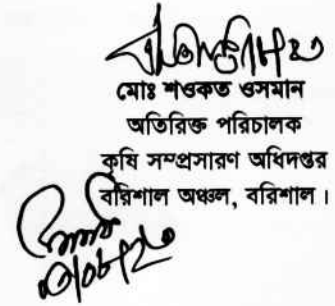 মোঃ শওকত ওসমান
অতিরিক্ত পরিচালক
কৃষি সম্প্রসারণ অধিদপ্তর
বরিশাল অঞ্চল, বরিশাল।